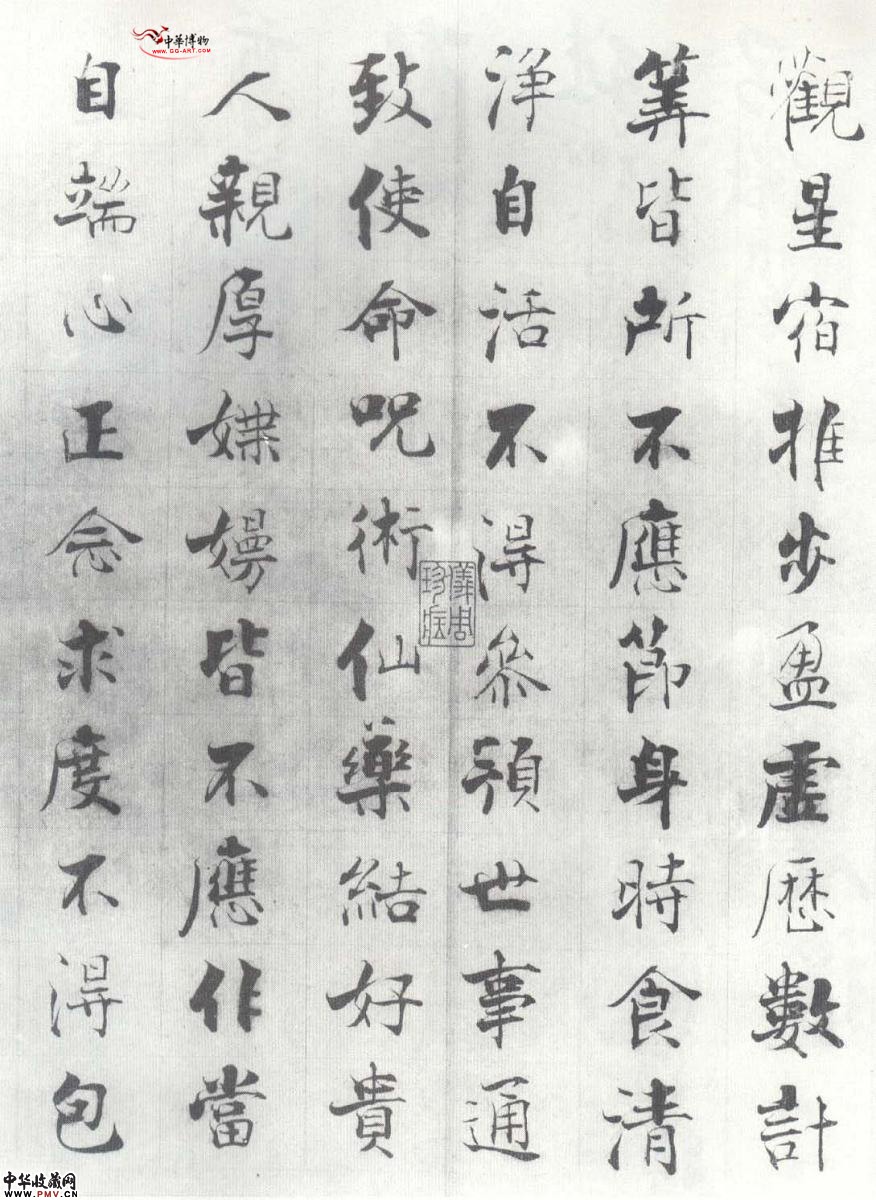 觀星宿推步盈虛歷數計
筭皆所不應節身時食清
淨自活不得參預世事通
致使命呪術仙藥結好貴
人親厚媟嫚皆不應作當
自端心正念求度不得包
儀周珍藏
中華博物
WWW.GG-ART.COM
中华收藏网
WWW.PMV.CN